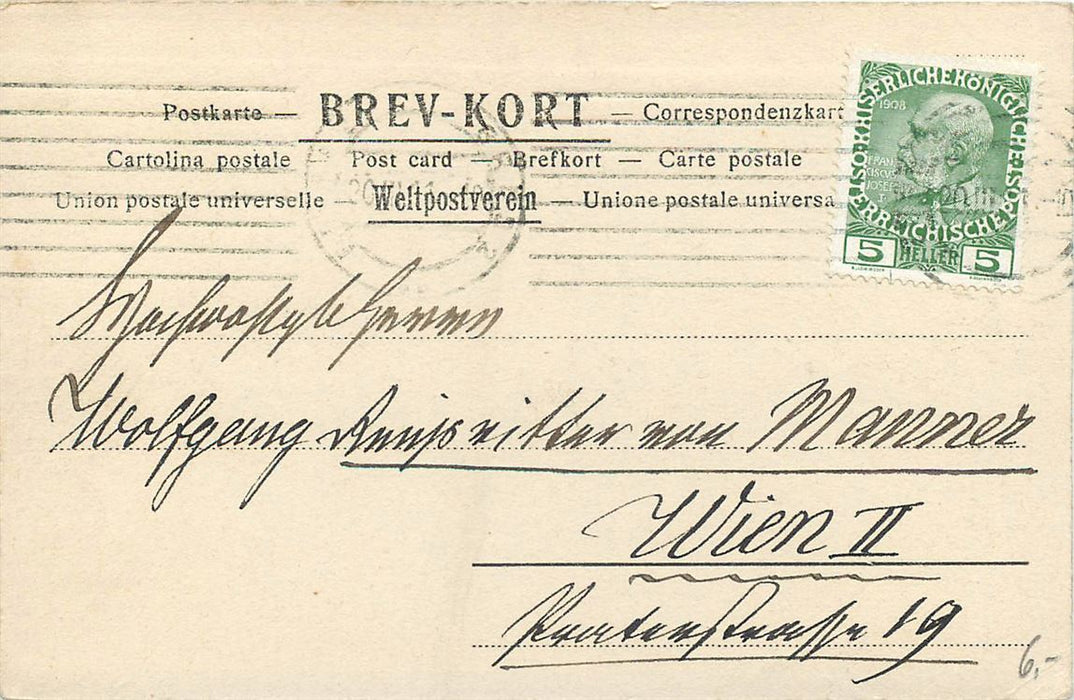 Postkarte — BREV-KORT — Correspondenzkart
Cartolina postale Post card — Brefkort — Carte postale
Union postale universelle — Weltpostverein — Unione postale universa
KAISERLICHE KÖNIGLICHE ÖSTERREICHISCHE POST
1908
FRAN
CISCVS
JOSEF I
5 HELLER 5
Hochwohlgeb Herrn
Wolfgang Reußritter von Manner
Wien II
Praterstrasse 19
6,-